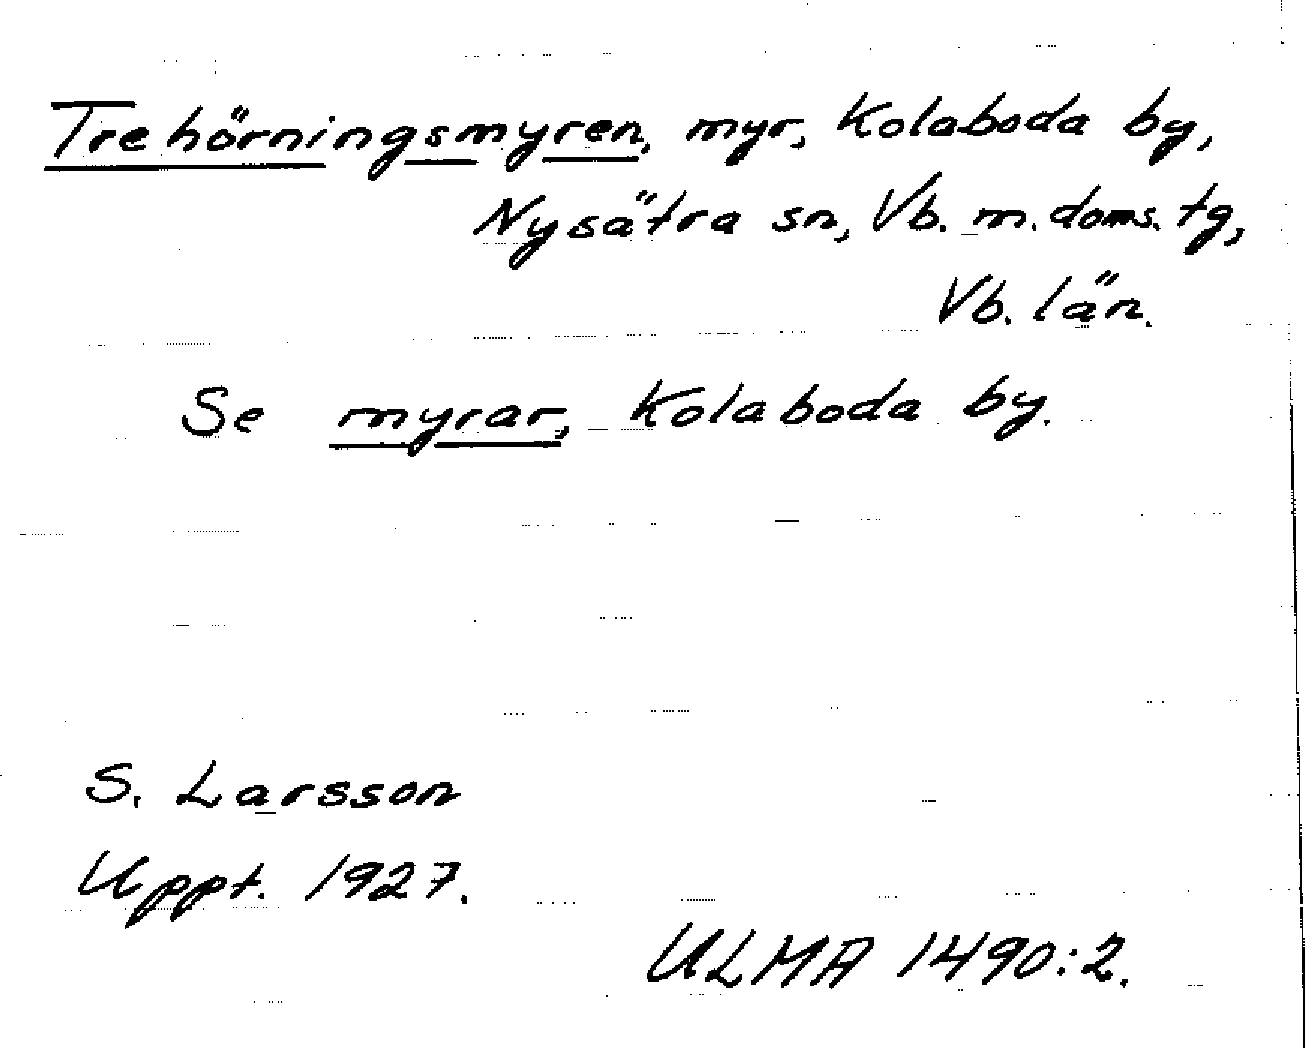 Trehörningsmyren, myr, Kolaboda by,
Nysätra sn, Vb. m. doms. tg,
Vb. län.
Se myrar, Kolaboda by.
S. Larsson
Uppt. 1927.
ULMA 1490:2.